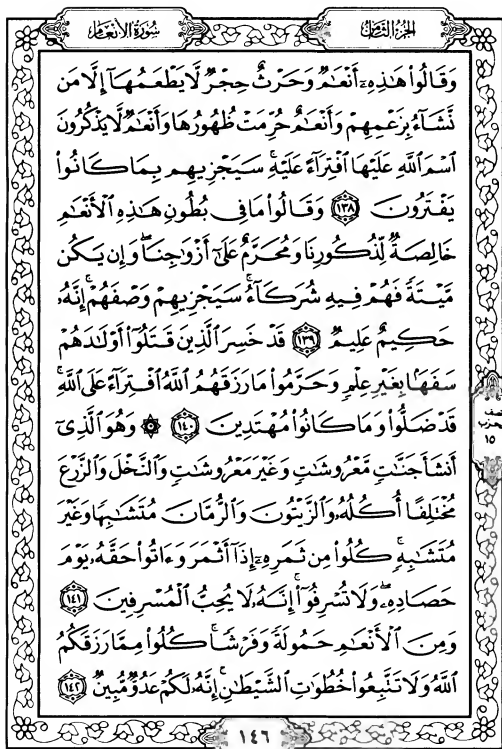 الجزء الثامن
سورة الأنعام
وَقَالُوا۟ هَٰذِهِۦٓ أَنْعَٰمٌ وَحَرْثٌ حِجْرٌ لَّا يَطْعَمُهَآ إِلَّا مَن
نَّشَآءُ بِزَعْمِهِمْ وَأَنْعَٰمٌ حُرِّمَتْ ظُهُورُهَا وَأَنْعَٰمٌ لَّا يَذْكُرُونَ
ٱسْمَ ٱللَّهِ عَلَيْهَا ٱفْتِرَآءً عَلَيْهِ ۚ سَيَجْزِيهِم بِمَا كَانُوا۟
يَفْتَرُونَ ١٣٨ وَقَالُوا۟ مَا فِى بُطُونِ هَٰذِهِ ٱلْأَنْعَٰمِ
خَالِصَةٌ لِّذُكُورِنَا وَمُحَرَّمٌ عَلَىٰٓ أَزْوَٰجِنَا ۖ وَإِن يَكُن
مَّيْتَةً فَهُمْ فِيهِ شُرَكَآءُ ۚ سَيَجْزِيهِمْ وَصْفَهُمْ ۚ إِنَّهُۥ
حَكِيمٌ عَلِيمٌ ١٣٩ قَدْ خَسِرَ ٱلَّذِينَ قَتَلُوٓا۟ أَوْلَٰدَهُمْ
سَفَهًۢا بِغَيْرِ عِلْمٍ وَحَرَّمُوا۟ مَا رَزَقَهُمُ ٱللَّهُ ٱفْتِرَآءً عَلَى ٱللَّهِ ۚ
قَدْ ضَلُّوا۟ وَمَا كَانُوا۟ مُهْتَدِينَ ١٤٠ ۞ وَهُوَ ٱلَّذِىٓ
أَنشَأَ جَنَّٰتٍ مَّعْرُوشَٰتٍ وَغَيْرَ مَعْرُوشَٰتٍ وَٱلنَّخْلَ وَٱلزَّرْعَ
مُخْتَلِفًا أُكُلُهُۥ وَٱلزَّيْتُونَ وَٱلرُّمَّانَ مُتَشَٰبِهًا وَغَيْرَ
مُتَشَٰبِهٍ ۚ كُلُوا۟ مِن ثَمَرِهِۦٓ إِذَآ أَثْمَرَ وَءَاتُوا۟ حَقَّهُۥ يَوْمَ
حَصَادِهِۦ ۖ وَلَا تُسْرِفُوٓا۟ ۚ إِنَّهُۥ لَا يُحِبُّ ٱلْمُسْرِفِينَ ١٤١
وَمِنَ ٱلْأَنْعَٰمِ حَمُولَةً وَفَرْشًا ۚ كُلُوا۟ مِمَّا رَزَقَكُمُ
ٱللَّهُ وَلَا تَتَّبِعُوا۟ خُطُوَٰتِ ٱلشَّيْطَٰنِ ۚ إِنَّهُۥ لَكُمْ عَدُوٌّ مُّبِينٌ ١٤٢
١٤٦
الحزب
١٥